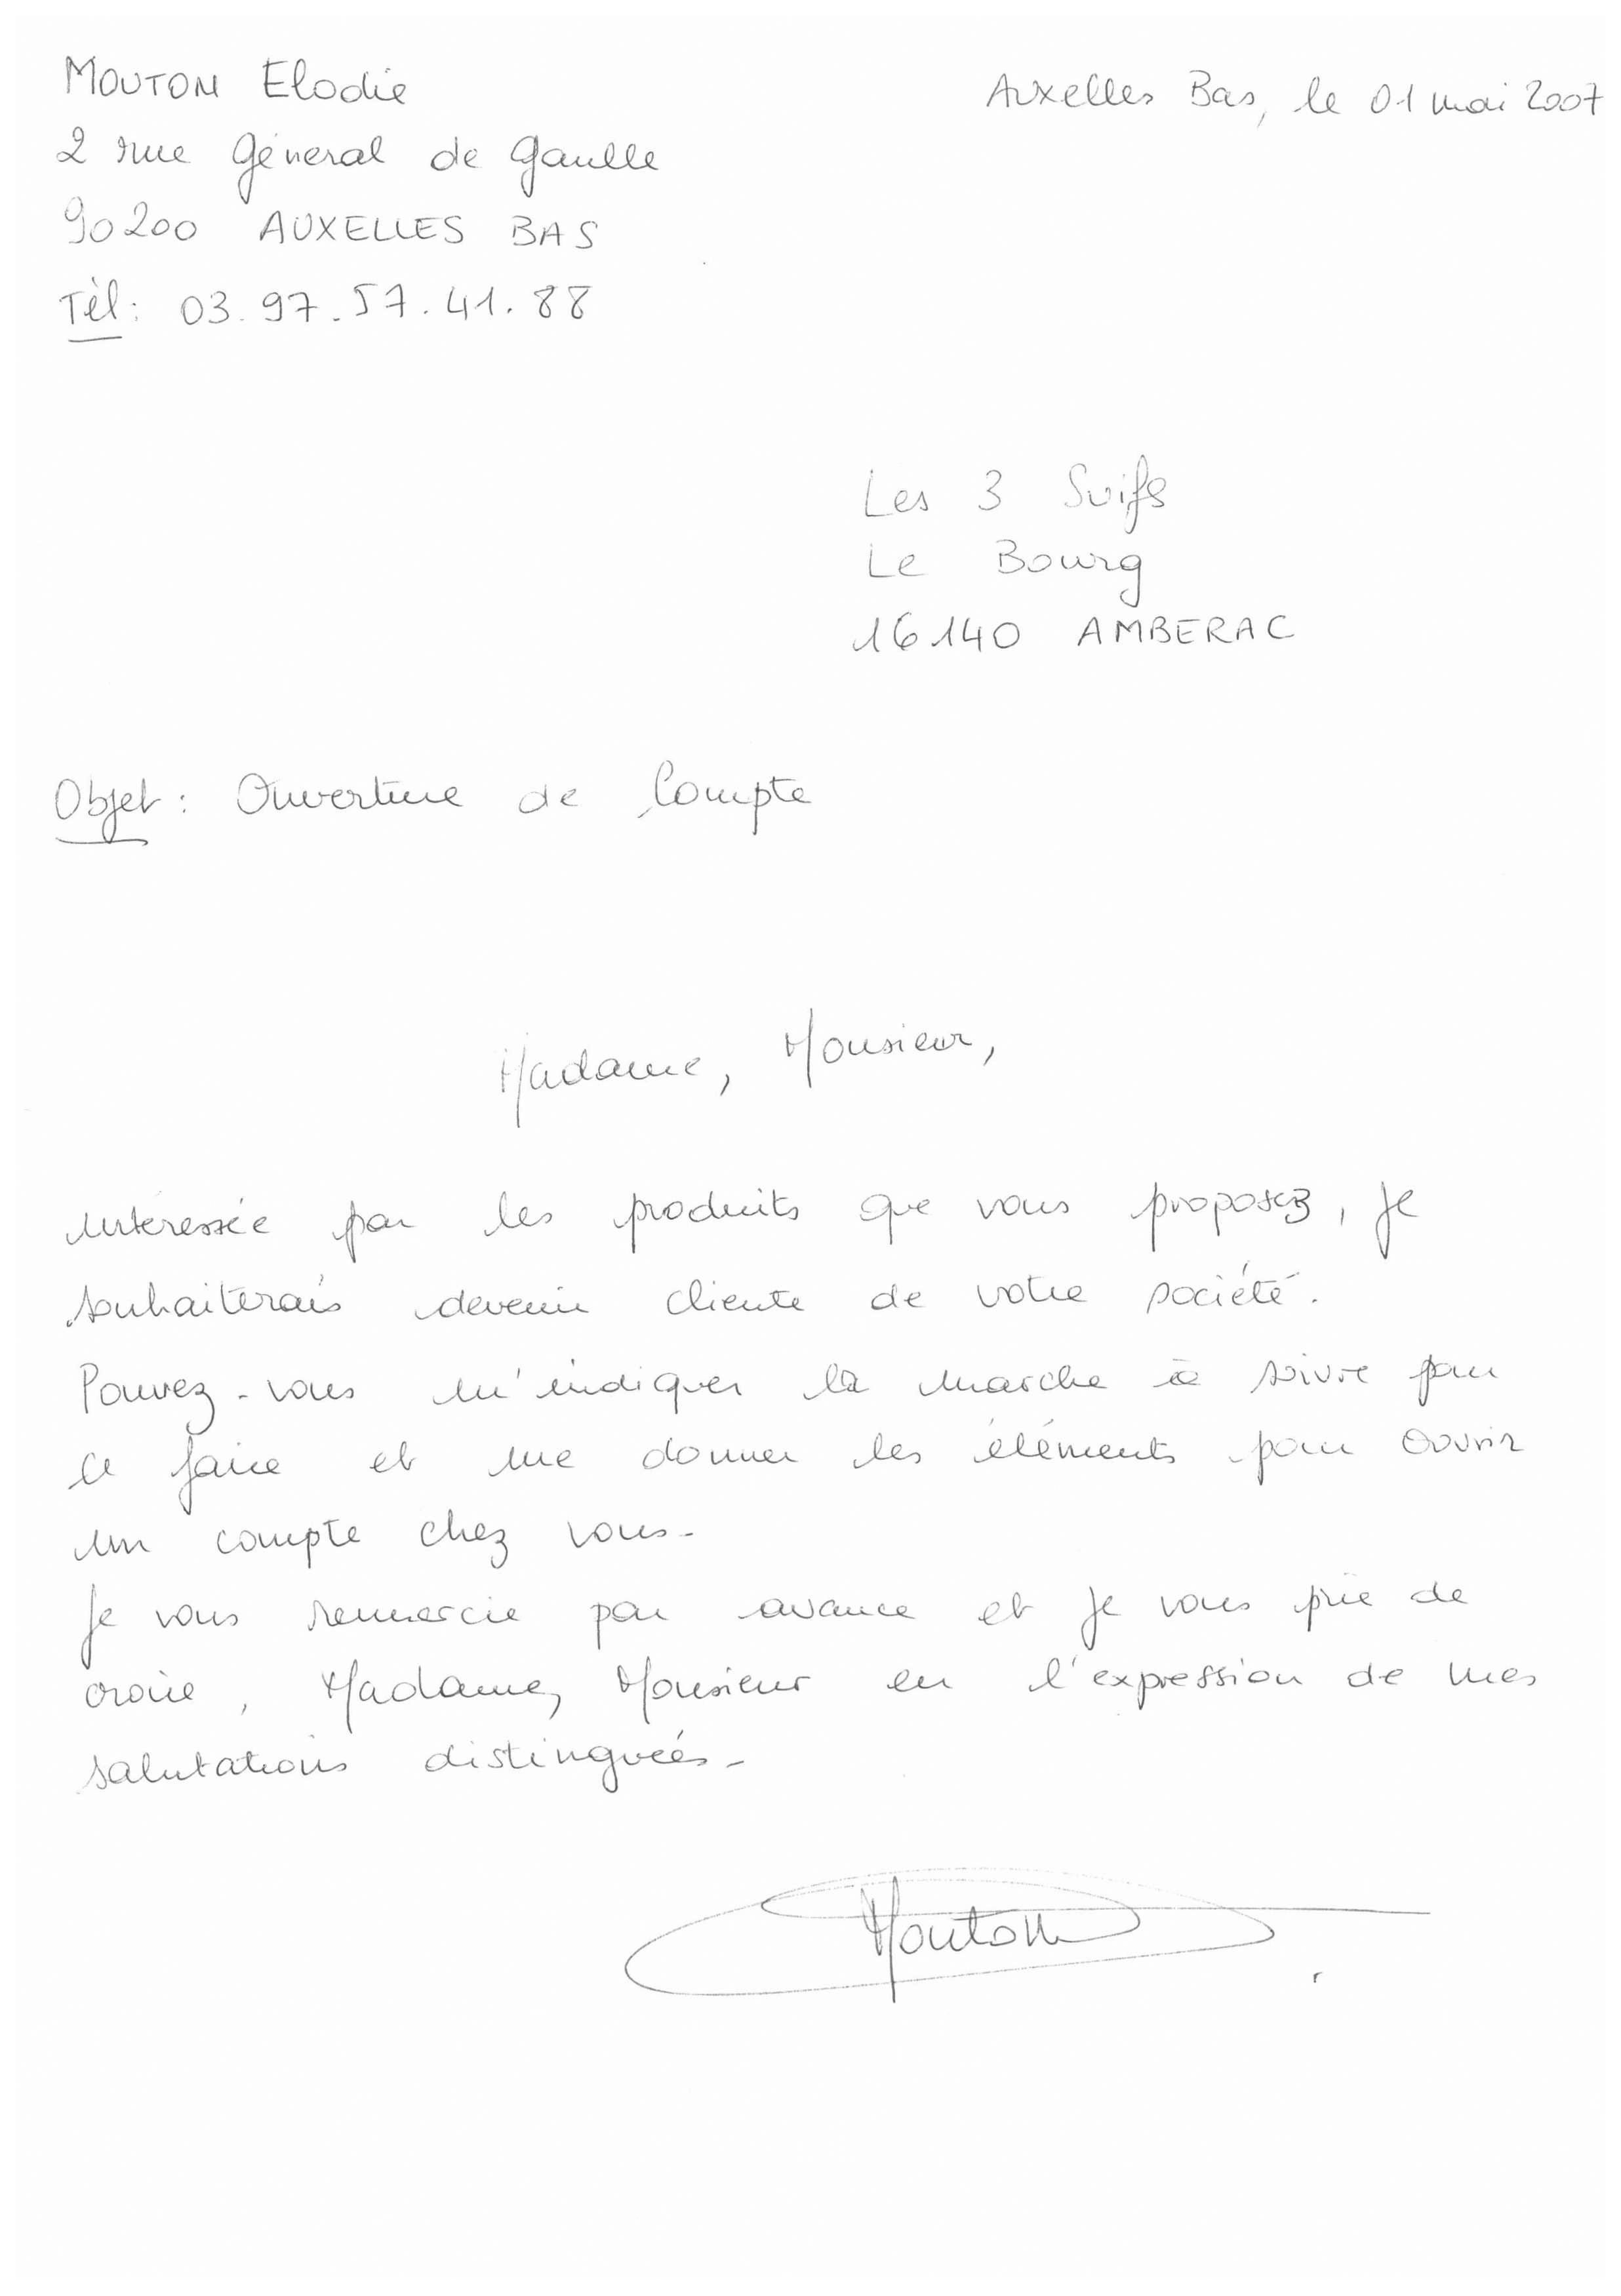 MOUTON Elodie
Auxelles Bas, le 01 mai 2007
2 rue Général de Gaulle
90200 AUXELLES BAS
Tél: 03.97.57.41.88
Les 3 Suifs
Le Bourg
16140 AMBERAC
Objet: Ouverture de Compte
Madame, Monsieur,
intéressée par les produits que vous proposez, je
souhaiterais devenir cliente de votre société.
Pouvez-vous m'indiquer la marche à suivre pour
ce faire et me donner les éléments pour ouvrir
un compte chez vous.
Je vous remercie par avance et je vous prie de
croire, Madame, Monsieur en l'expression de mes
salutations distinguées.
Mouton